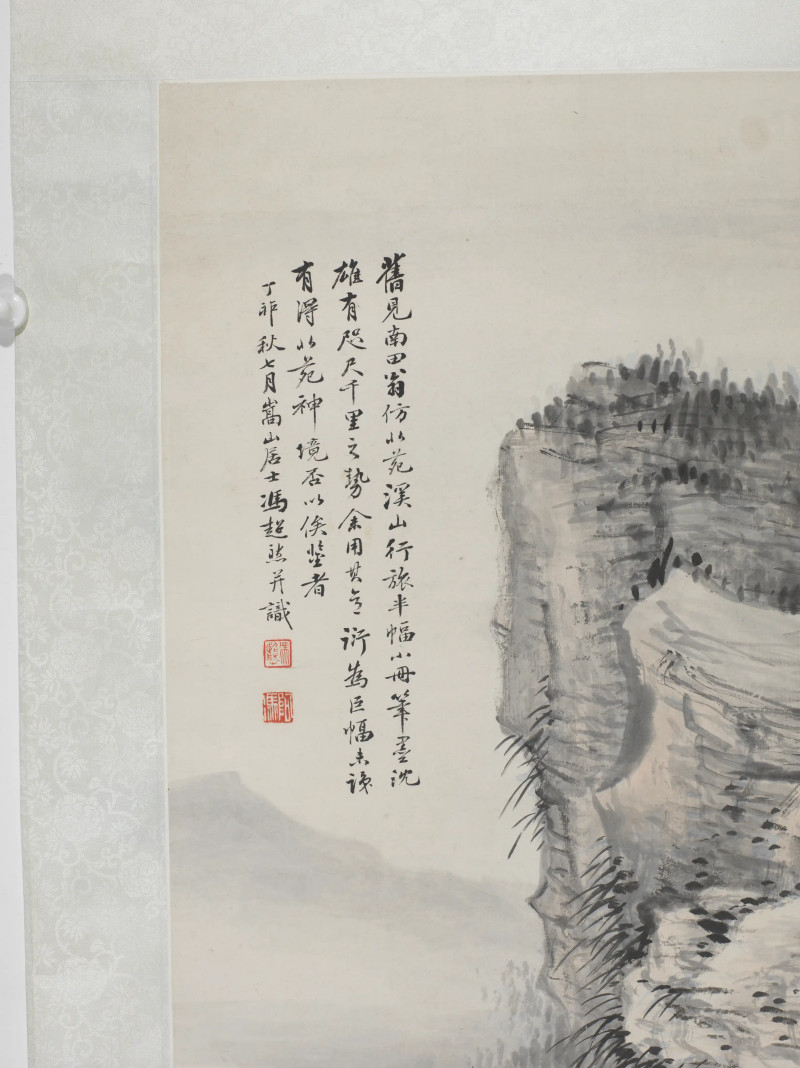 舊見南田翁仿北苑溪山行旅半幅小冊筆墨沈
雄有咫尺千里之勢余用其意衍為巨幅未識
有得北苑神境否以俟鑒者
丁卯秋七月嵩山居士馮超然并識